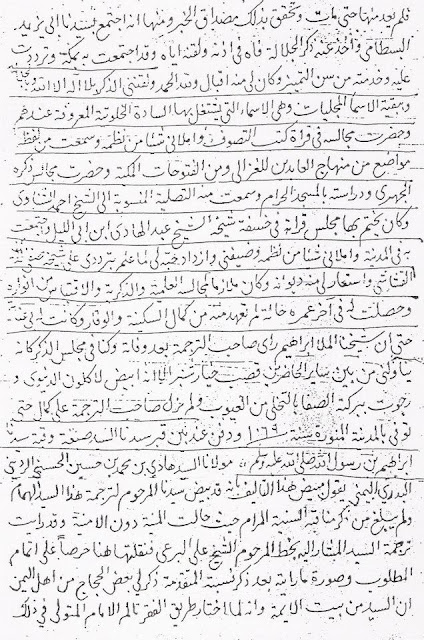 فلم يعد منها حتى مات وتحقق بذلك مصداق الخبر ومنها انه اجتمع بسيدنا ابي يزيد
البسطامي وأخذ عنه ذكر الجلالة فاه في اذنه ولقنه اياه وقد اجتمعت به بمكة وترددت
عليه وخدمته من سن التمييز وكان لي منه اقبال ولله الحمد ولقنني الذكر بلا اله الا الله
وبقية الاسماء المجليات وهي الاسماء التي يشتغل بها السادة الخلوتية المعروفة عندهم
وحضرت مجالسه في قراة كتب التصوف واملاني شئا من نظمه وسمعت من لفظه
مواضع من منهاج العابدين للغزالي ومن الفتوحات المكية وحضرت مجالس ذكره
الجهري ودراسته بالمسجد الحرام وسمعت منه التصلية المنسوبة الى الشيخ احمد الشناوي
وكان يختم بها مجلس قراته في خمسة شيخه الشيخ عبد الهادي ابن ابي الليل واجتمعت
به في المدينة واملاني شئا من نظمه وضيفني وازداد حبه لي لما علم ترددي على شيخه صفي الدين
القشاشي واستعار لي منه ديوانه وكان ملازما لمجالسه العلمية والذكرية والاقتباس من انواره
وحصلت له في آخر عمره حالة لم تعهد منه من كمال السكينة والوقار وكانت له عناية
حتى ان شيخنا الملا ابراهيم راى صاحب الترجمة بعد وفاته وكنا في مجلس الذكر كانه
يناولني من بين سائر الحاضرين قصب خيار شنبر الا انه ابيض لا كلون الدنيوي و
رجوت ببركة الصفا بالتخلي من العيوب ولم يزل صاحب الترجمة على كمال حتى
توفي بالمدينة المنورة سنة ١٠٦٩ ودفن عند بين قبر سيدتنا السيدة صفية وقبة سيدنا
ابراهيم بن رسول الله صلى الله عليه وسلم ،، مولانا السيد هادي بن محمد بن حسين الحسني
اليمني يقول مبيض هذا التاليف بانه قد بيض سيدنا المرحوم لترجمة هذا السيد الهمام
ولم يبلغ من ذكر مناقبه السنية المرام حيث حالت المنية دون الامنية وقد رايت
ترجمة السيد المشار اليه بخط المرحوم الشيخ علي البرعي فنقلتها هنا حرصا على اتمام
المطلوب وصورة ما رايته بعد ذكر نسبته المتقدمة ذكر لي بعض الحجاج من اهل اليمن
ان السيد من بيت الايمة وانه لما اختار طريق الفقر تالم الامام المتولي في ذلك